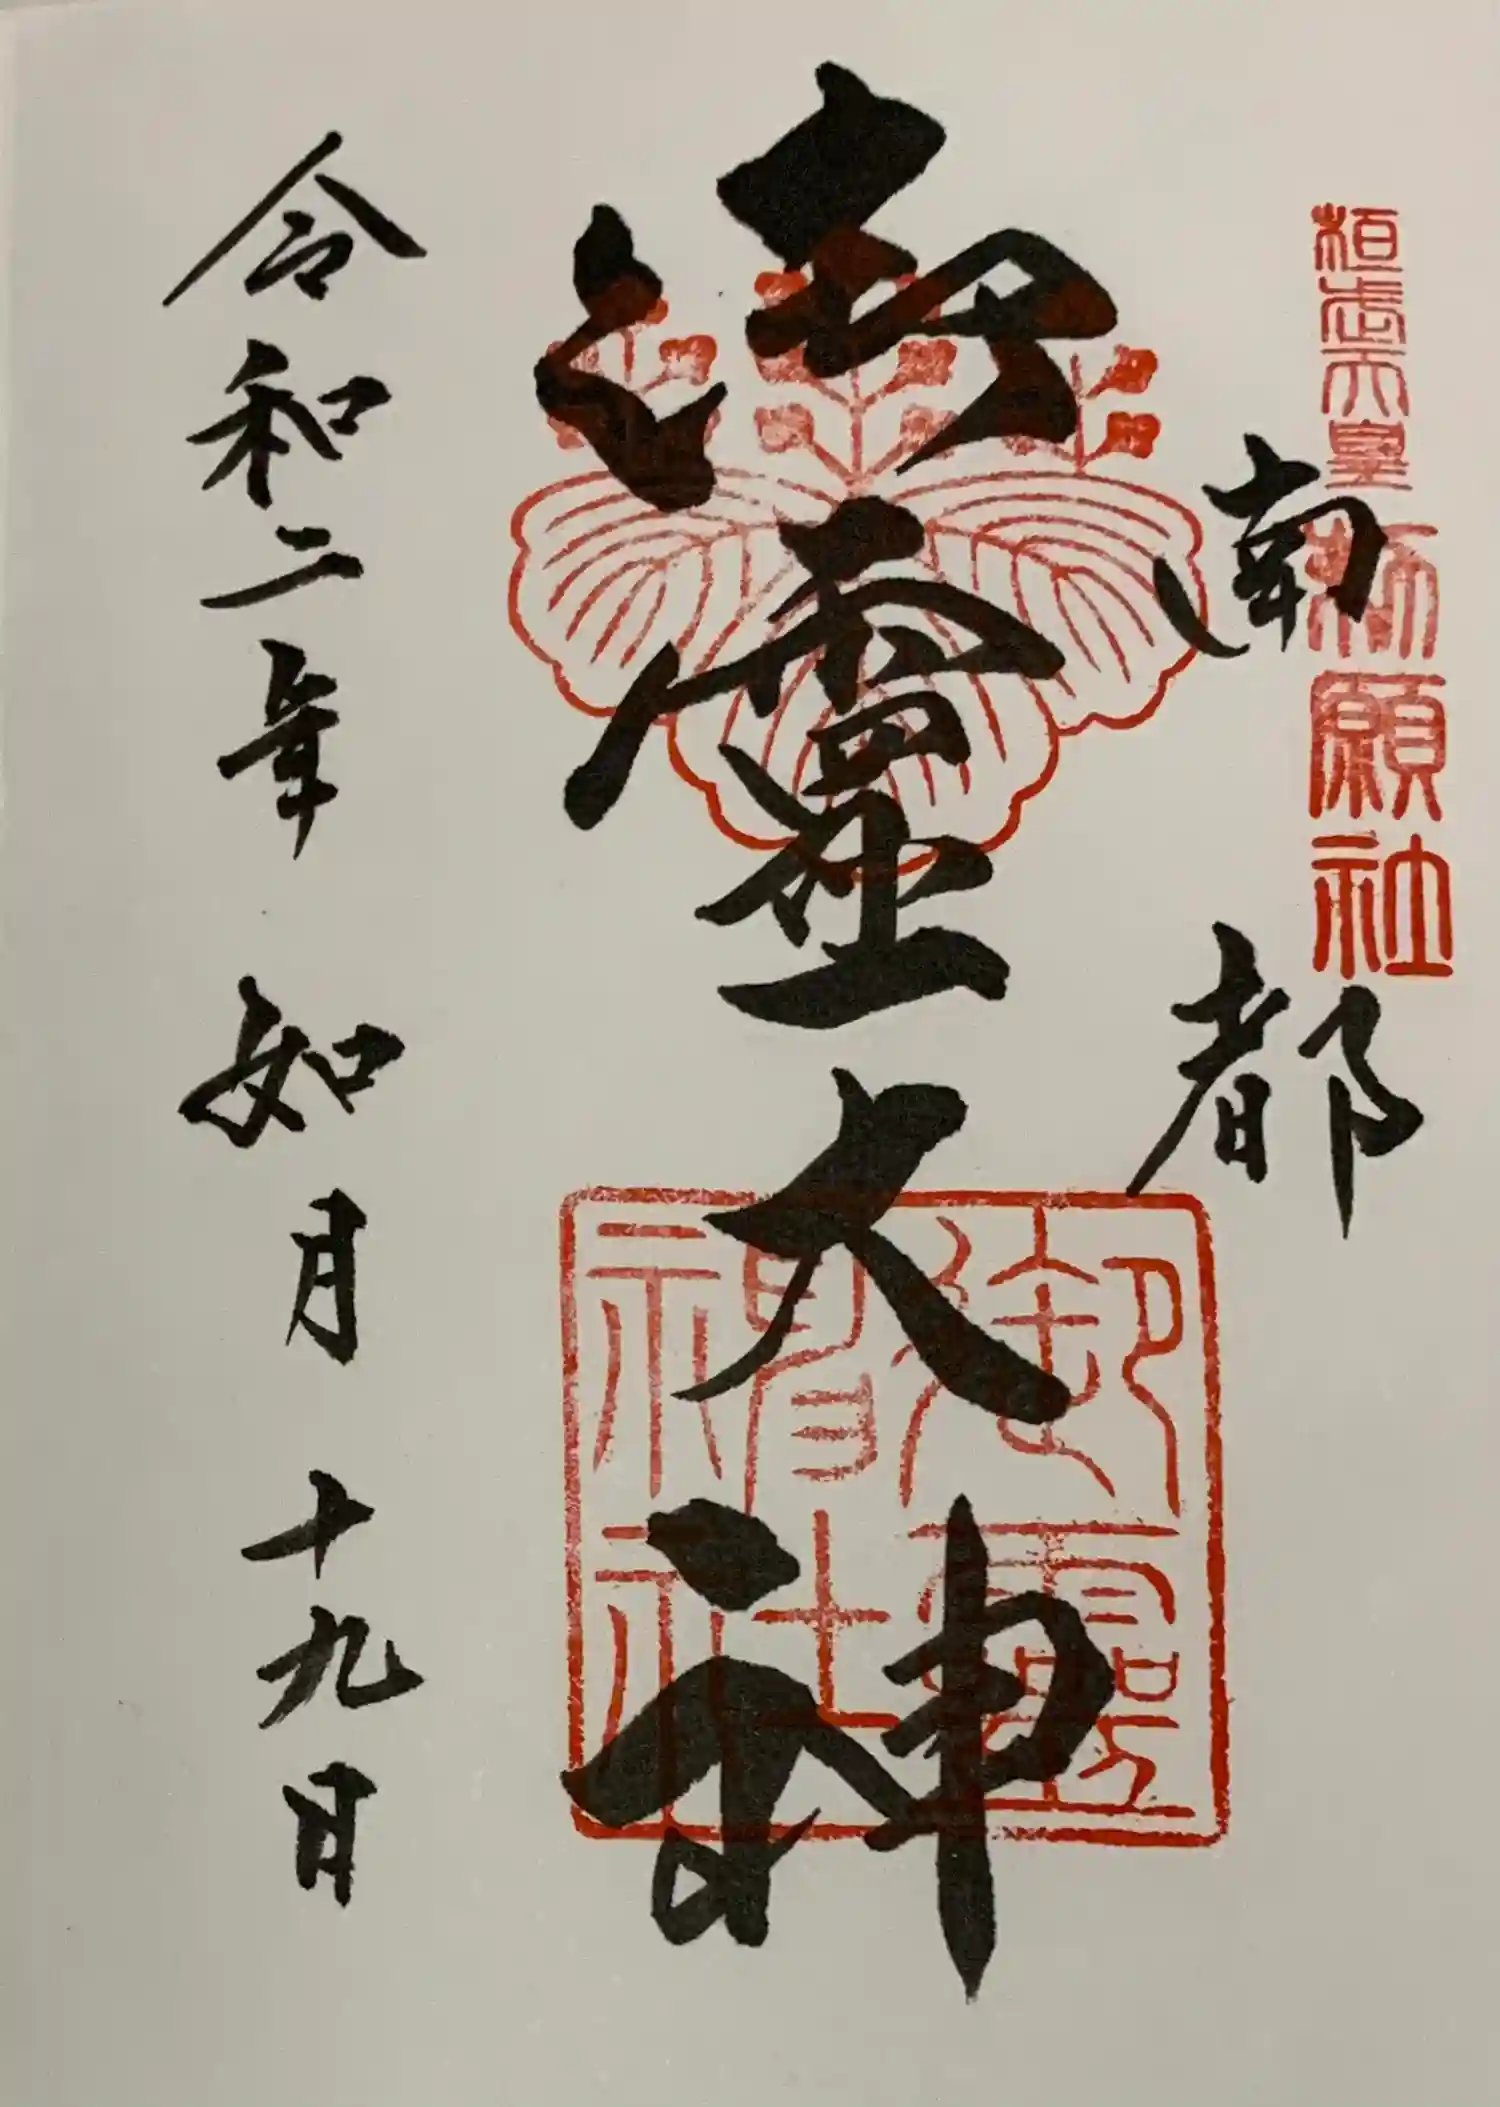 桓武天皇勅願社
南都
御霊大神
御霊神社
令和二年 如月十九日